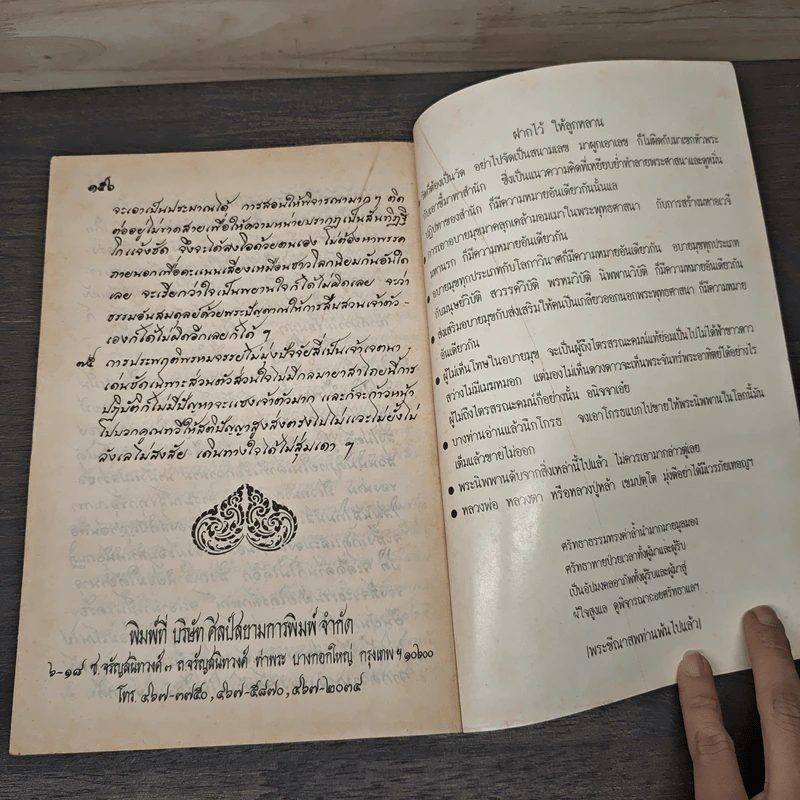 ๑๕๖
จะเอาเป็นประมาณได้ การสอนให้พิจารณามาก ๆ ติด
ต่ออยู่ไม่ขาดสายเพื่อให้ความหน่ายปรากฏเป็นสันทิฏฐิ
โกแจ้งชัด จึงจะได้ลงใจด้วยตนเอง ไม่ต้องหาพรรค
ภายนอกเพื่อคะแนนเสียงเหมือนชาวโลกนิยมกันอันใด
เลย จะเรียกว่าใจเป็นพยานใจก็ได้ไม่ผิดเลย จะว่า
ธรรมอันสมดุลย์ด้วยพระปัญญาณให้การสืบสวนเจ้าตัว-
เองก็ได้ไม่ผิดอีกเลยก็ได้ ๆ
๗๕ การประพฤติพรหมจรรย์ไม่มุ่งปัจจัยสี่เป็นเจ้าเจตนา-
เด่นชัดเฉพาะส่วนตัวส่วนใจไม่มีกลมายาสาไถยนี้การ
ปฏิบัติก็ไม่มีปัญหาจะแซงเจ้าตัวมาก และก็จะก้าวหน้า
ไปบวกคูณทวีให้สติปัญญาสูงส่งตรงไปไม่แวะไม่ยั้งไม่
จังเลไม่สงสัย เดินทางใจได้ไม่สุ่มเดา ๆ
พิมพ์ที่ บริษัท ศิลป์สยามการพิมพ์ จำกัด
๖-๑๘ ซ.จรัญสนิทวงศ์ ๓ ถ.จรัญสนิทวงศ์ ท่าพระ บางกอกใหญ่ กรุงเทพ ฯ ๑๐๖๐๐
โทร. ๔๖๗-๓๗๕๐, ๔๖๗-๕๘๗๐, ๔๖๗-๒๐๓๔
ฝากไว้ ให้ลูกหลาน
วัดก็ต้องเป็นวัด อย่าไปจัดเป็นสนามเลข มาผูกเอาเลข ก็ไม่ผิดกับมาเขกหัวพระ
กับเอาขี้มาทาสำนัก ซึ่งเป็นแนวความคิดที่เหยียบย่ำทำลายพระศาสนาและดูหมิ่น
ปฏิปทาของสำนัก ก็มีความหมายอันเดียวกันนั้นแล
● การเอาอบายมุขมาคลุกเคล้ามอมเมาในพระพุทธศาสนา กับการสร้างมหาอเวจี
มหานรก ก็มีความหมายอันเดียวกัน
● อบายมุขทุกประเภทกับโลกาวินาศก็มีความหมายอันเดียวกัน อบายมุขทุกประเภท
กับมนุษย์วิบัติ สวรรค์วิบัติ พรหมวิบัติ นิพพานวิบัติ ก็มีความหมายอันเดียวกัน
● ส่งเสริมอบายมุขกับส่งเสริมให้คนปีนเกลียวออกนอกพระพุทธศาสนา ก็มีความหมาย
อันเดียวกัน
● ผู้ไม่เห็นโทษในอบายมุข จะเป็นผู้ถึงไตรสรณะคมน์แท้ย่อมเป็นไปไม่ได้ฟ้าขาวดาว
สว่างไม่มีเมฆหมอก แต่มองไม่เห็นดวงดาวจะเห็นพระจันทร์พระอาทิตย์ได้อย่างไร
ผู้ไม่ถึงไตรสรณะคมน์ก็อย่างนั้น อนิจจาเอ๋ย
● บางท่านอ่านแล้วนึกโกรธ จงเอาโกรธแบกไปขายให้พระนิพพานในโลกนี้มัน
เต็มแล้วขายไม่ออก
● พระนิพพานดับจากสิ่งเหล่านี้ไปแล้ว ไม่ควรเอามากล่าวตู่เลย
● หลวงพ่อ หลวงตา หรือหลวงปู่หล้า เขมปตฺโต มุ่งดีอย่าได้มีเวรภัยเทอญฯ
ศรัทธาธรรมทรงค่าล้ำนำมากมายมูลมอง
ศรัทธาทายป่วยเวลาทั้งผู้มาและผู้รับ
เป็นอัปมงคลอาภัพทั้งผู้รับและผู้มาสู่
ผู้ใจสูงแล ดูพิจารณาถอยศรัทธาแลฯ
(พระขีณาสพท่านพ้นไปแล้ว)